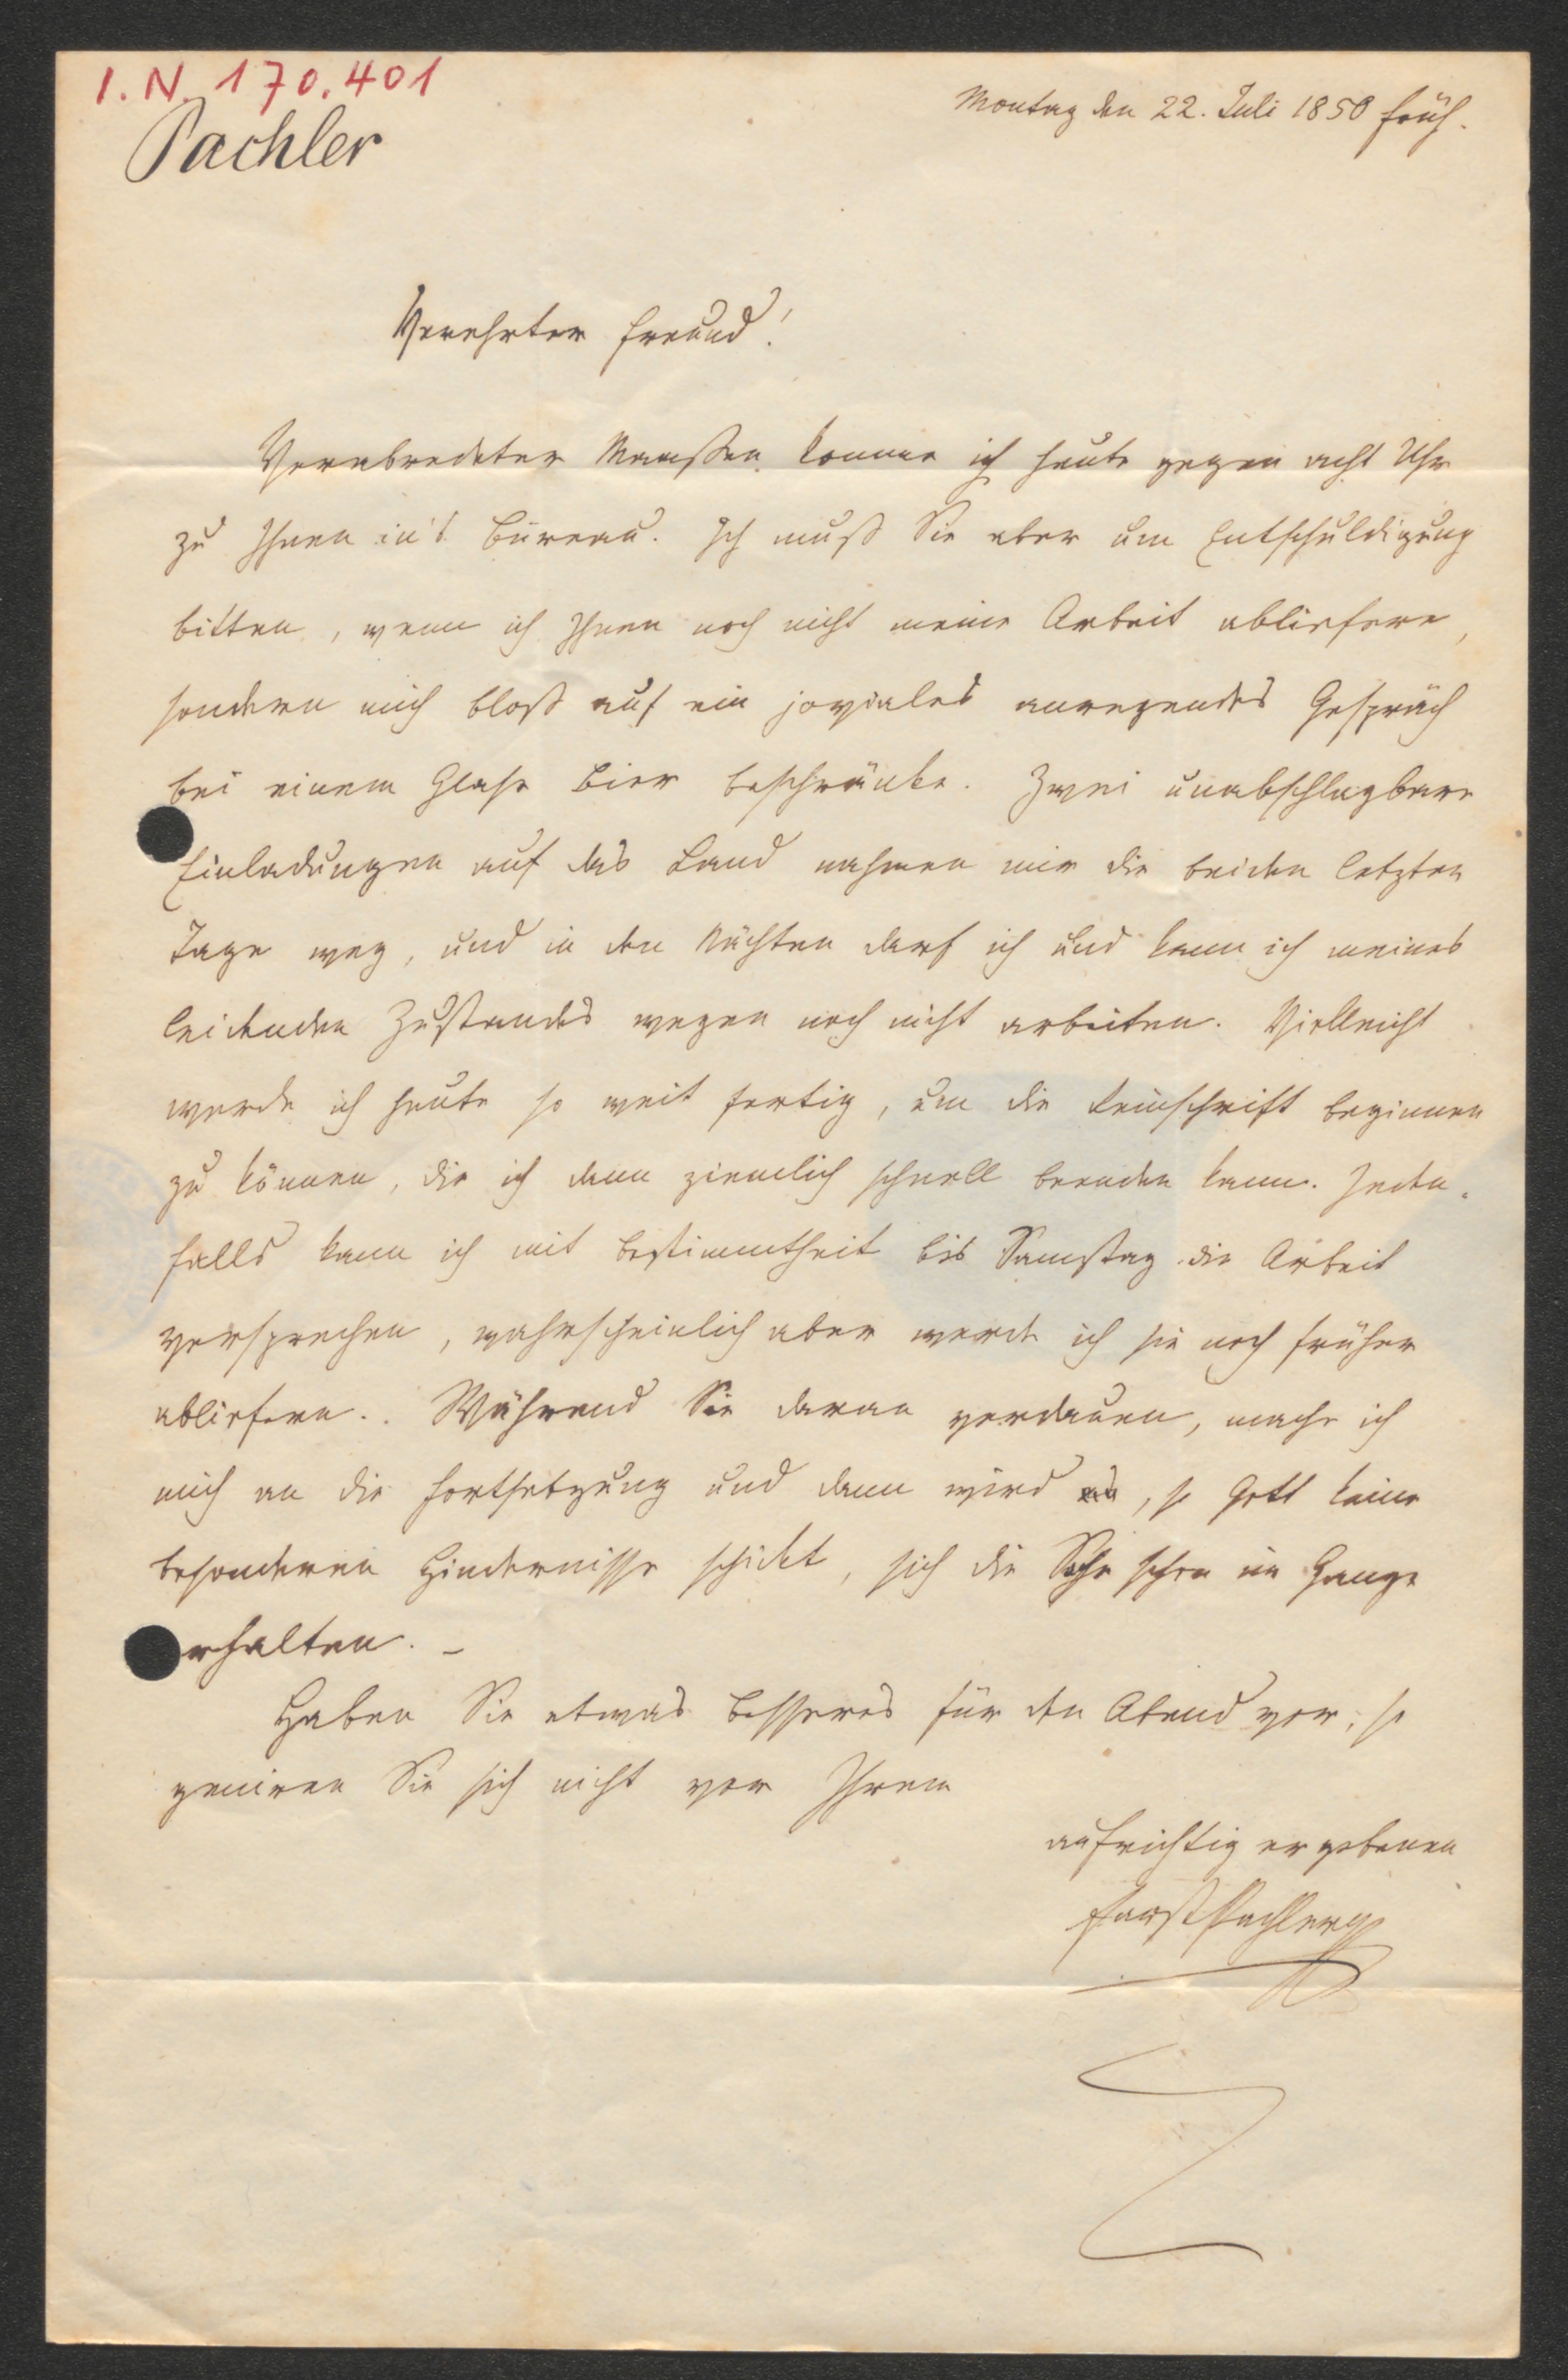 I. N. 170.401
Pachler
Montag den 22. Juli 1850 früh.
Verehrter Freund!
Verabredeter Maaßen komme ich heute gegen acht Uhr
zu Ihnen in's Büreau. Ich muß Sie aber um Entschuldigung
bitten, wenn ich Ihnen noch nicht meine Arbeit abliefere,
sondern mich bloß auf ein joviales anregendes Gespräch
bei einem Glase Bier beschränke. Zwei unabschlagbare
Einladungen auf das Land nahmen mir die beiden letzten
Tage weg, und in den Nächten darf ich und kann ich meines
leidenden Zustandes wegen noch nicht arbeiten. Vielleicht
werde ich heute so weit fertig, um die Reinschrift beginnen
zu können, die ich dann ziemlich schnell beenden kann. Jeden-
falls kann ich mit Bestimmtheit bis Samstag die Arbeit
versprechen, wahrscheinlich aber werde ich sie noch früher
abliefern. Während Sie daran verdauen, mache ich
mich an die Fortsetzung und dann wird, so Gott keine
besonderen Hindernisse schickt, sich die Sache schon im Gange
erhalten. –
Haben Sie etwas Besseres für den Abend vor, so
geniren Sie sich nicht vor Ihrem
aufrichtig ergebenen
Faust Pachler